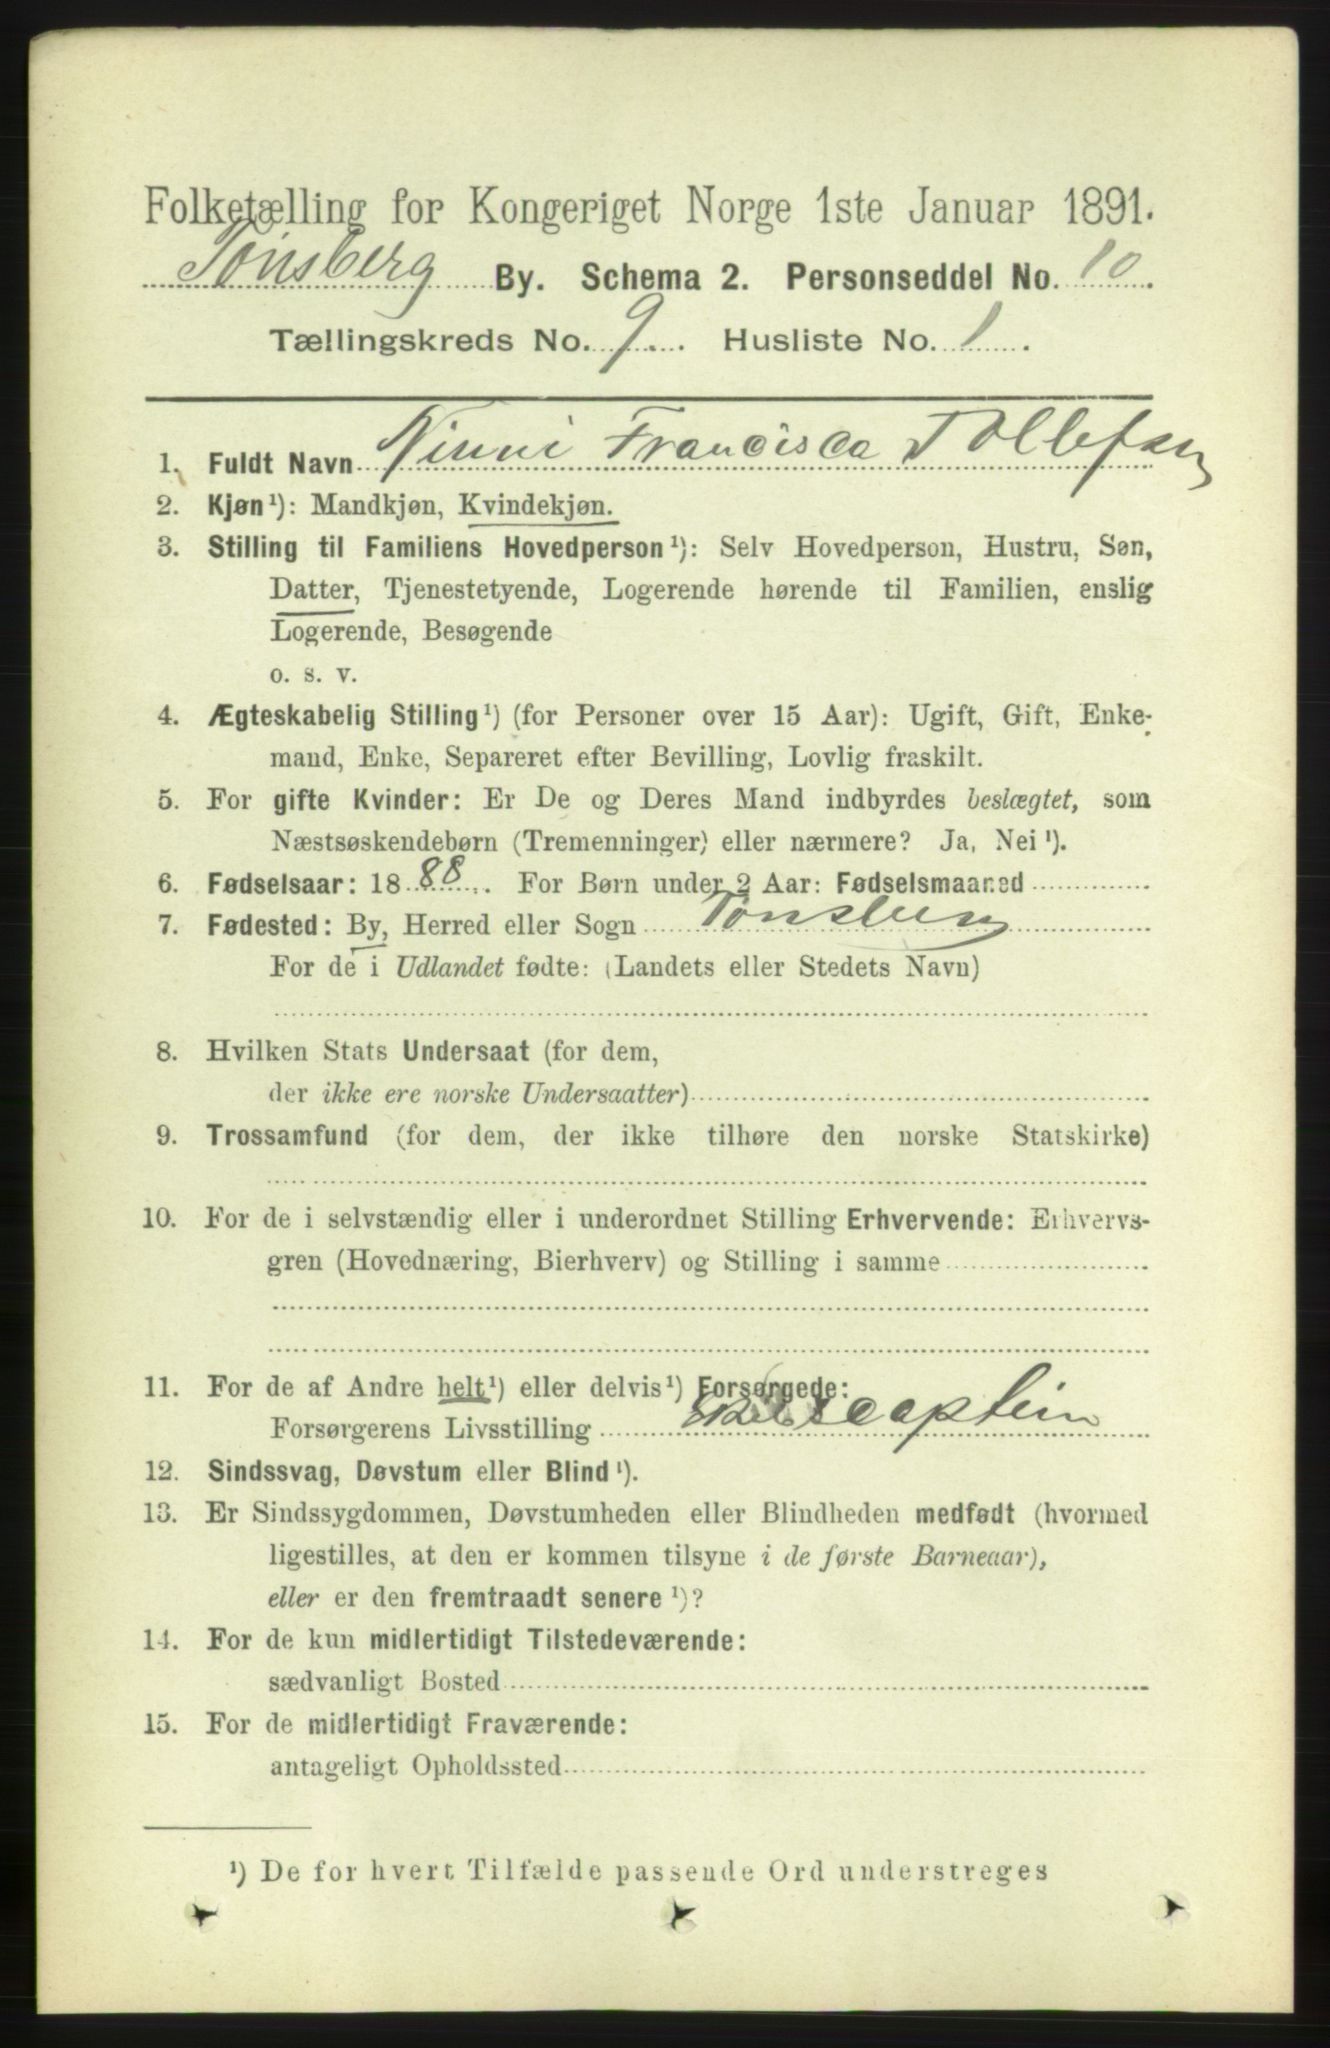 Folketælling for Kongeriget Norge 1ste Januar 1891.
Tønsberg By. Schema 2. Personseddel No. 10.
Tællingskreds No. 9. Husliste No. 1.
1. Fuldt Navn Ninni Francisca Tollefsen
2. Kjøn¹): Mandkjøn, Kvindekjøn.
3. Stilling til Familiens Hovedperson¹): Selv Hovedperson, Hustru, Søn,
Datter, Tjenestetyende, Logerende hørende til Familien, enslig
Logerende, Besøgende
o. s. v.
4. Ægteskabelig Stilling¹) (for Personer over 15 Aar): Ugift, Gift, Enke-
mand, Enke, Separeret efter Bevilling, Lovlig fraskilt.
5. For gifte Kvinder: Er De og Deres Mand indbyrdes beslægtet, som
Næstsøskendebørn (Tremenninger) eller nærmere? Ja, Nei¹).
6. Fødselsaar: 1888. For Børn under 2 Aar: Fødselsmaaned
7. Fødested: By, Herred eller Sogn Tønsberg
For de i Udlandet fødte: (Landets eller Stedets Navn)
8. Hvilken Stats Undersaat (for dem,
der ikke ere norske Undersaatter)
9. Trossamfund (for dem, der ikke tilhøre den norske Statskirke)
10. For de i selvstændig eller i underordnet Stilling Erhvervende: Erhvervs-
gren (Hovednæring, Bierhverv) og Stilling i samme
11. For de af Andre helt¹) eller delvis¹) Forsørgede:
Forsørgerens Livsstilling captein
12. Sindssvag, Døvstum eller Blind¹).
13. Er Sindssygdommen, Døvstumheden eller Blindheden medfødt (hvormed
ligestilles, at den er kommen tilsyne i de første Barneaar),
eller er den fremtraadt senere¹)?
14. For de kun midlertidigt Tilstedeværende:
sædvanligt Bosted
15. For de midlertidigt Fraværende:
antageligt Opholdssted
¹) De for hvert Tilfælde passende Ord understreges